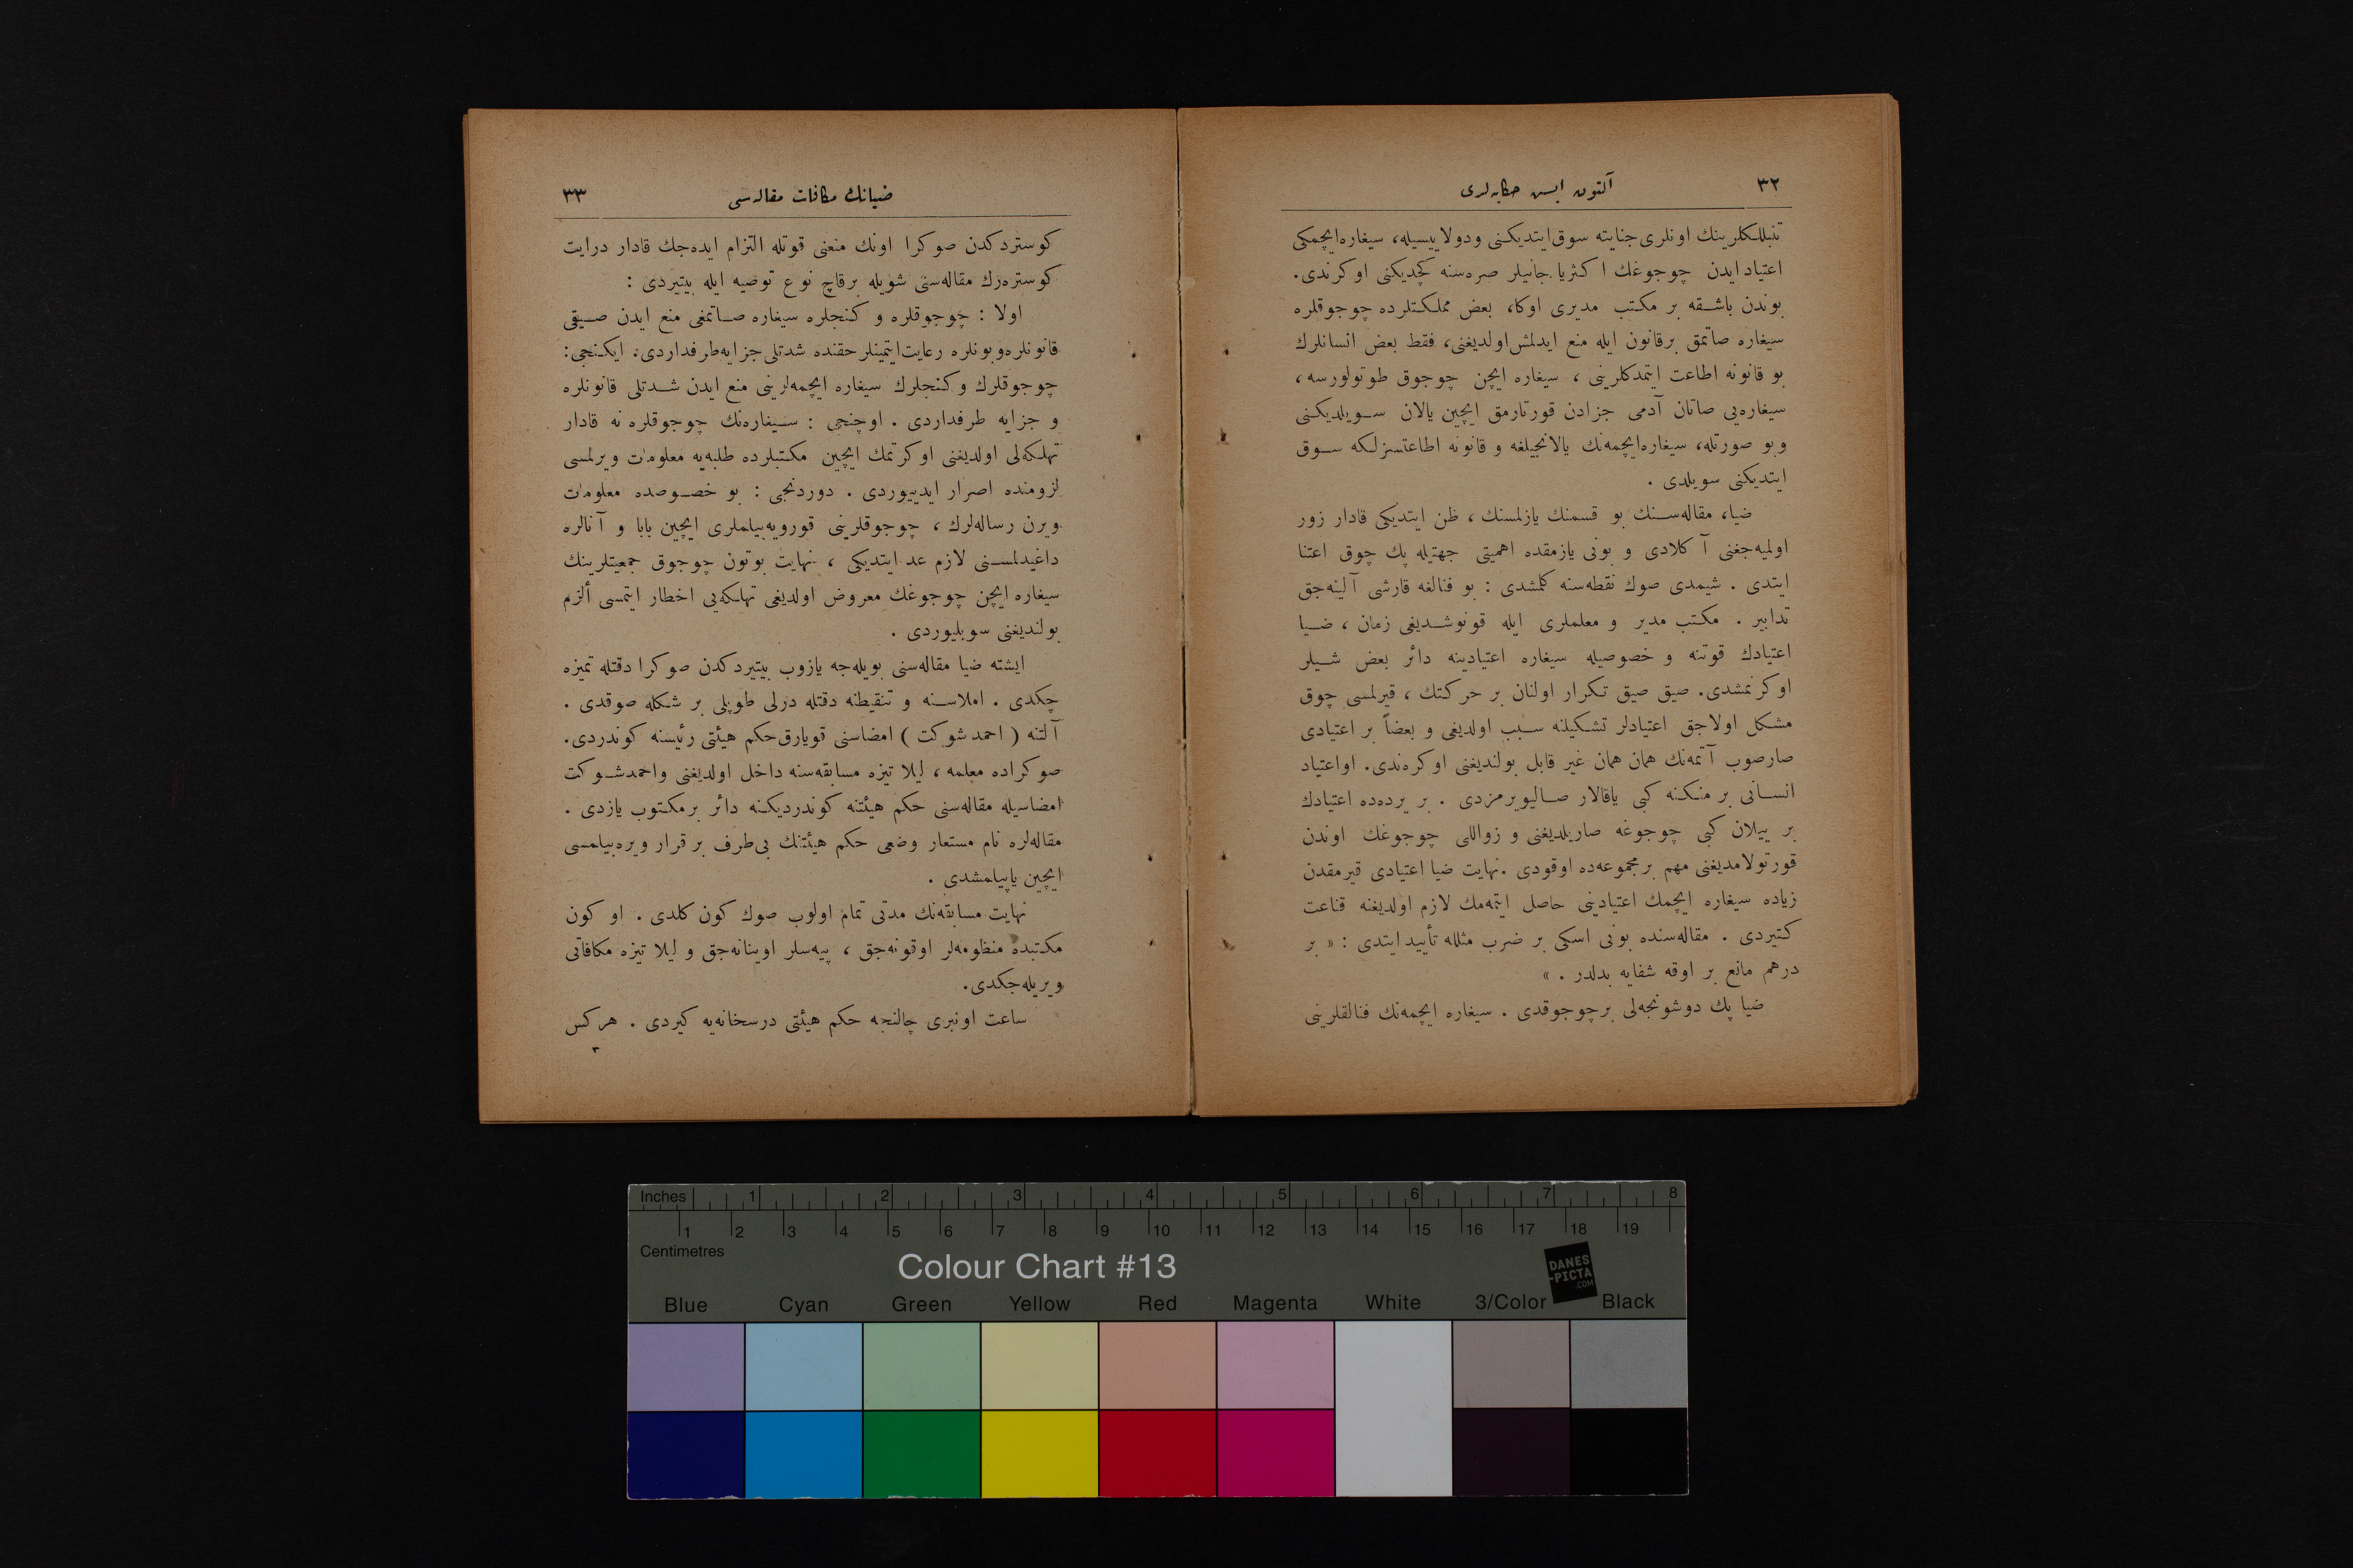 ٣٢
آلتون ایسی حکایه‌لری
تنبللکلرینك اونلری‌جنایته سوق‌ایتدیکنی ودولاییسیله، سیغاره‌ایچمکی
اعتیاد ایدن چوجوغك اکثریا جانیلر صره‌سنه کچدیکنی اوکرندی.
بوندن باشقه بر مکتب مدیری اوکا، بعض مملکتلرده چوجوقلره
سیغاره صاتمق برقانون ایله منع ایدلمش‌اولدیغنی، فقط بعض انسانلرك
بو قانونه اطاعت ایتمدکلرینی ، سیغاره ایچن چوجوق طوتولورسه ،
سیغاره‌یی صاتان آدمی جزادن قورتارمق ایچین یالان سویلدیکنی
وبو صورتله، سیغاره‌ایچمه‌نك یالانجیلغه و قانونه اطاعتسزلکه سوق
ایتدیکنی سویلدی .
ضیا، مقاله‌سنك بو قسمنك یازلمسنك ، ظن ایتدیکی قادار زور
اولمیه‌جغنی آکلادی و بونی یازمقده اهمیتی جهتیله پك چوق اعتنا
ایتدی . شیمدی صوك نقطه‌سنه کلمشدی : بو فنالغه قارشی آلینه‌جق
تدابیر . مکتب مدیر و معلملری ایله قونوشدیغی زمان ، ضیا
اعتیادك قوتنه و خصوصیله سیغاره اعتیادینه دائر بعض شیلر
اوکرنمشدی. صیق صیق تکرار اولنان بر حرکتك ، قیرلمسی چوق
مشکل اولاجق اعتیادلر تشکیلنه سبب اولدیغی و بعضاً بر اعتیادی
صارصوب آتمه‌نك همان همان غیر قابل بولندیغنی اوکره‌ندی. اواعتیاد
انسانی بر منکنه کبی یاقالار صالیویرمزدی . بر یرده‌ده اعتیادك
بر ییلان کبی چوجوغه صاریلدیغنی و زواللی چوجوغك اوندن
قورتولامدیغنی مهم برمجموعه‌ده اوقودی .نهایت ضیا اعتیادی قیرمقدن
زیاده سیغاره ایچمك اعتیادینی حاصل ایتمه‌مك لازم اولدیغنه قناعت
کتیردی . مقاله‌سنده بونی اسکی بر ضرب مثلله تأیید ایتدی : « بر
درهم مانع بر اوقه شفایه بدلدر . »
ضیا پك دوشونجه‌لی برچوجوقدی . سیغاره ایچمه‌نك فنالقلرینی
ضیانك مکافات مقاله‌سی
٣٣
کوستردکدن صوکرا اونك منعنی قوتله التزام ایده‌جك قادار درایت
کوستره‌رك مقاله‌سنی شویله برقاچ نوع توصیه ایله بیتیردی :
اولا : چوجوقلره و کنجلره سیغاره صاتمغی منع ایدن صیقی
قانونلره‌وبونلره رعایت‌ایتمینلرحقنده شدتلی‌جزایه‌طرفداردی. ایکنجی:
چوجوقلرك و کنجلرك سیغاره ایچمه‌لرینی منع ایدن شدتلی قانونلره
و جزایه طرفداردی . اوچنجی : سیغاره‌نك چوجوقلره نه قادار
تهلکه‌لی اولدیغنی اوکرتمك ایچین مکتبلرده طلبه‌یه معلومات ویرلمسی
لزومنده اصرار ایدییوردی . دوردنجی : بو خصوصده معلومات
ویرن رساله‌لرك ، چوجوقلرینی قورویه‌بیلملری ایچین بابا و آنالره
داغیدلمسنی لازم عد ایتدیکی ، نهایت بوتون چوجوق جمعیتلرینك
سیغاره ایچن چوجوغك معروض اولدیغی تهلکه‌یی اخطار ایتمسی ألزم
بولندیغنی سویلیوردی .
ایشته ضیا مقاله‌سنی بویله‌جه یازوب بیتیردکدن صوکرا دقتله تمیزه
چکدی . املاسنه و تنقیطنه دقتله درلی طوپلی بر شکله صوقدی .
آلتنه ( احمد شوکت ) امضاسنی قویارق‌حکم هیئتی رئیسنه کوندردی.
صوکراده معلمه ، لیلا تیزه مسابقه‌سنه داخل اولدیغنی واحمدشوکت
امضاسیله مقاله‌سنی حکم هیئتنه کوندردیکنه دائر برمکتوب یازدی .
مقاله‌لره نام مستعار وضعی حکم هیئتنك بی‌طرف بر قرار ویره‌بیلمسی
ایچین یاپیلمشدی .
نهایت مسابقه‌نك مدتی تمام اولوب صوك کون کلدی . او کون
مکتبده منظومه‌لر اوقونه‌جق ، پیه‌سلر اوینانه‌جق و لیلا تیزه مکافاتی
ویریله‌جکدی.
ساعت اونبری چالنجه حکم هیئتی درسخانه‌یه کیردی . هرکس
٣
Inches 1 2 3 4 5 6 7 8
1 2 3 4 5 6 7 8 9 10 11 12 13 14 15 16 17 18 19
Centimetres
Colour Chart #13
DANES
-PICTA
.COM
Blue Cyan Green Yellow Red Magenta White 3/Color Black